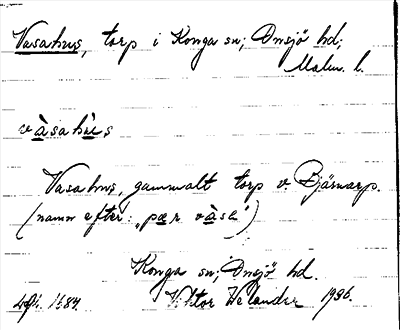 Vasahus, torp i Konga sn; Onsjö hd;
Malm. l.
vàsahùs
Vasahus, gammalt torp v. Bjärnarp.
(namn efter: „pær vàsa")
Konga sn; Onsjö hd.
Viktor Welander 1936.